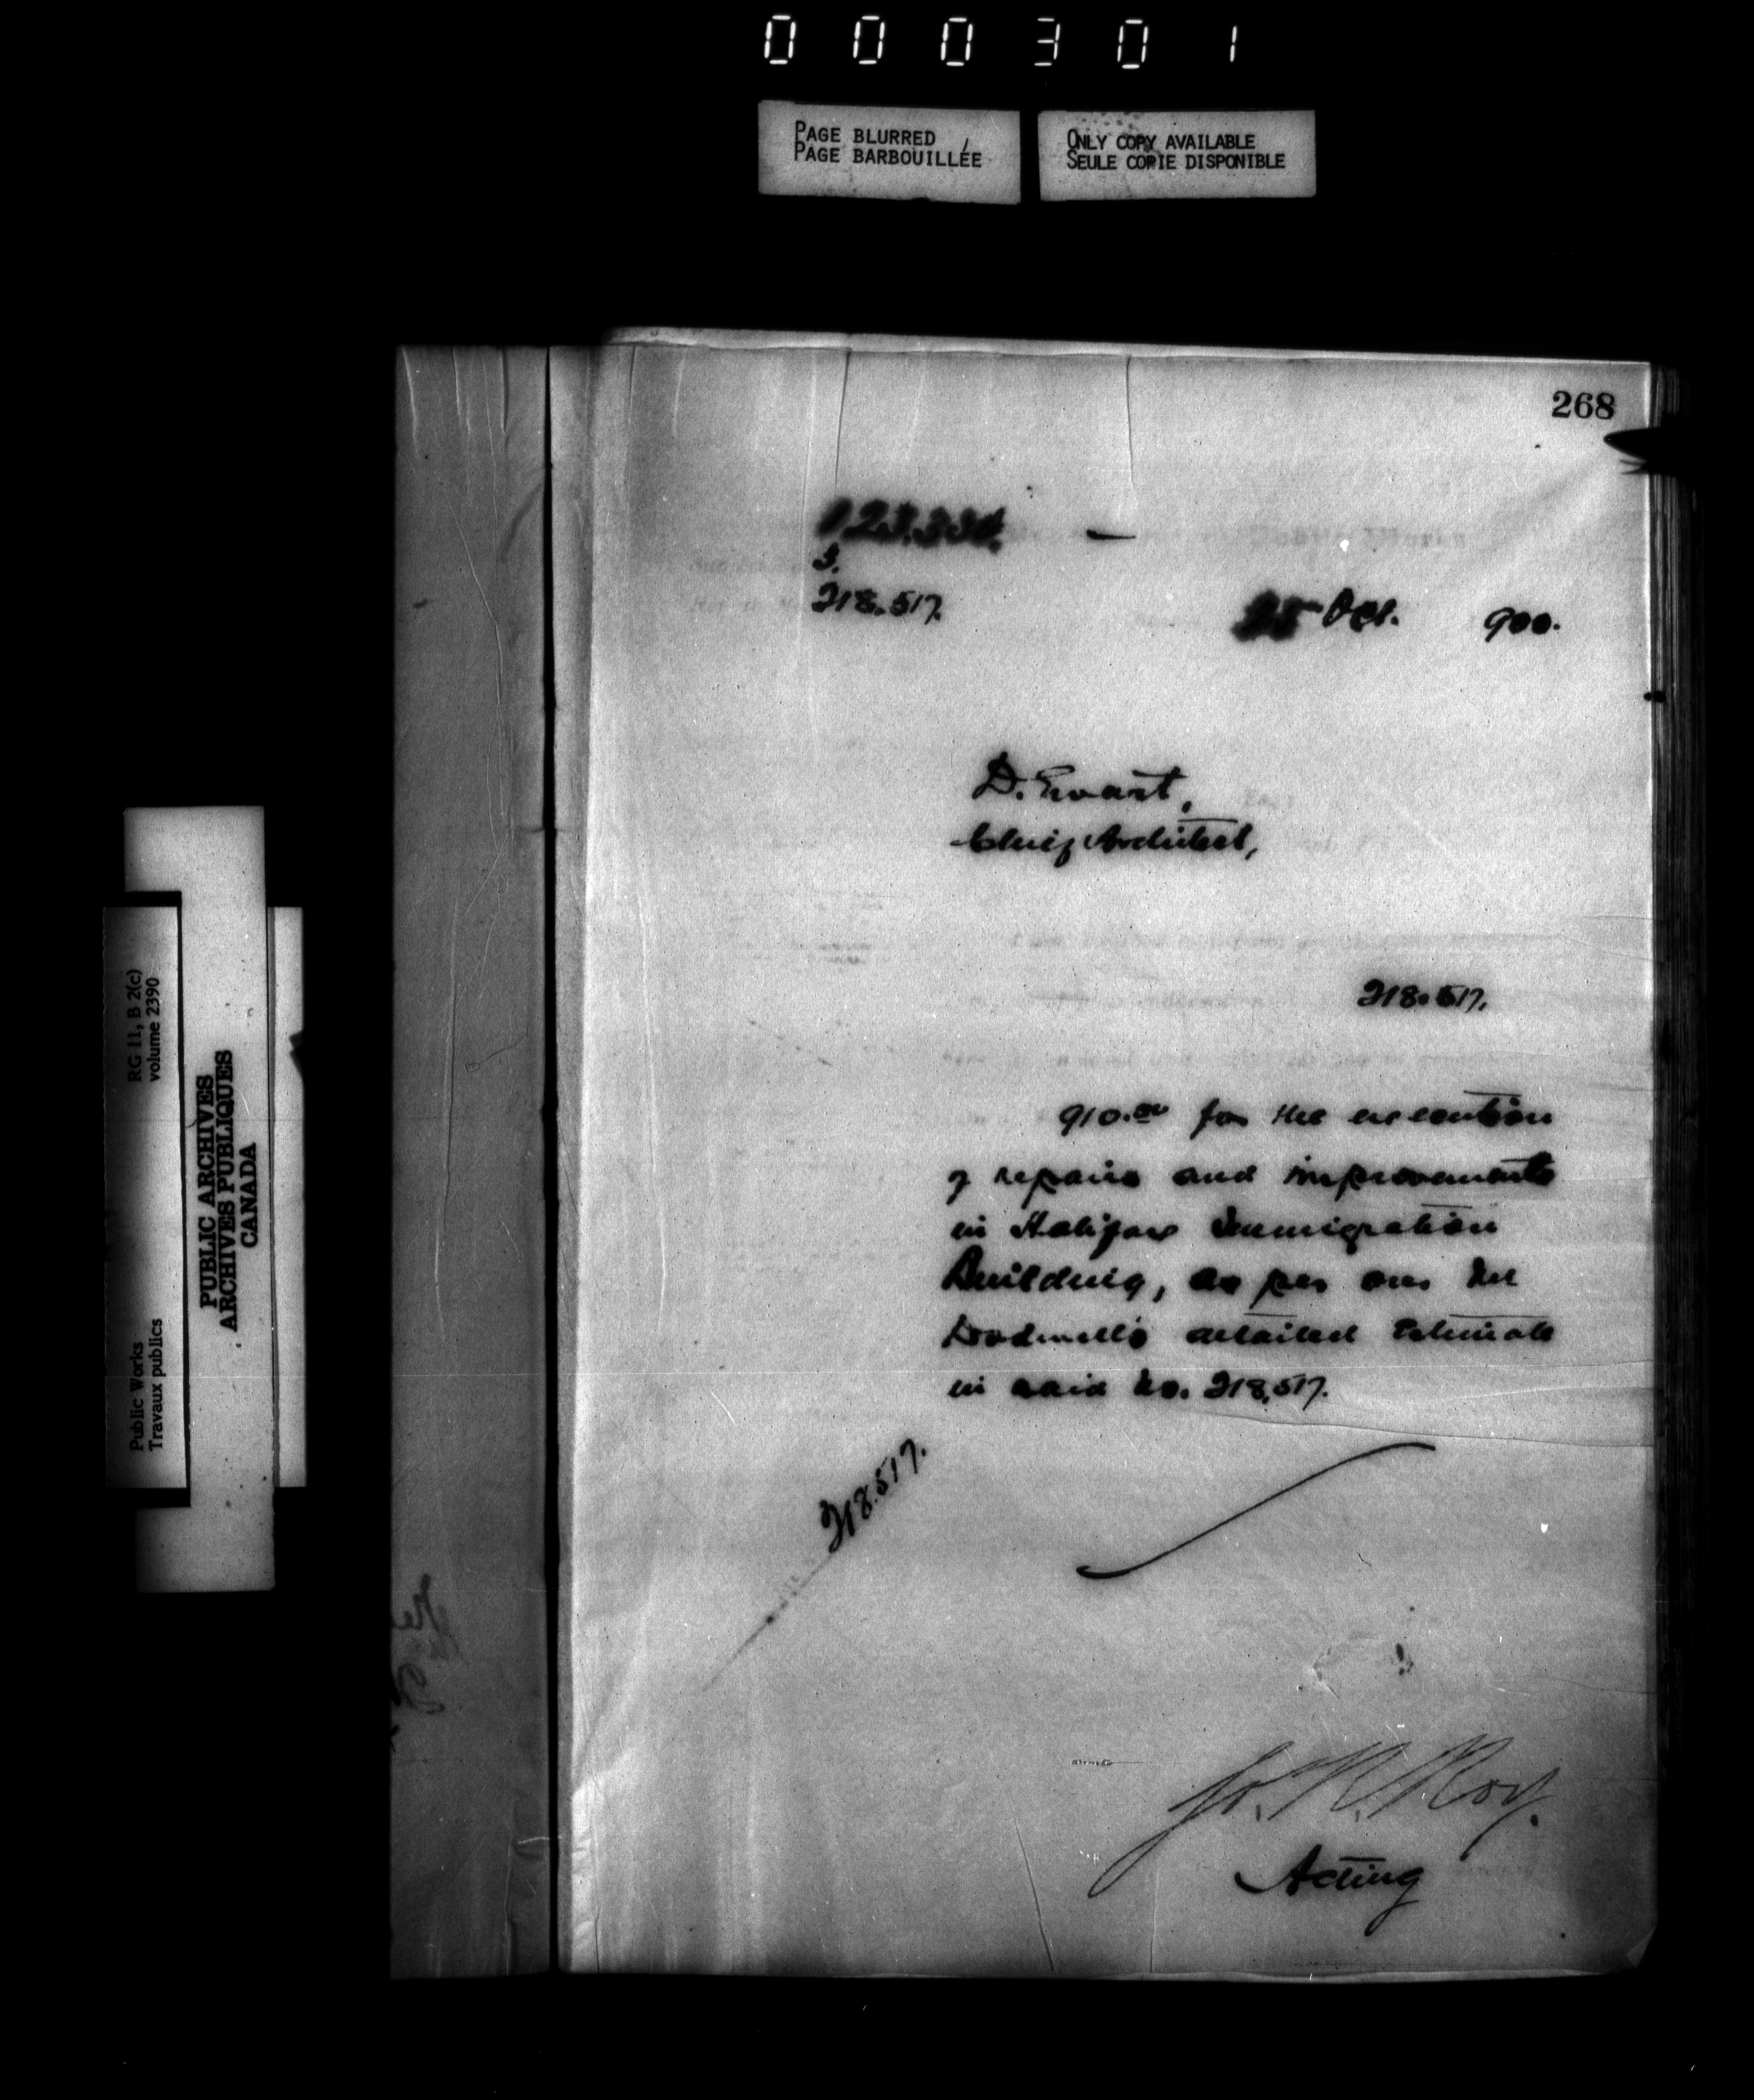 000301
PAGE BLURRED
PAGE BARBOUILLÉE
ONLY COPY AVAILABLE
SEULE COPIE DISPONIBLE
268
3.
218.517.
25 Oct. 900.
D. Ewart,
Chief Architect,
218.517.
910.00 for the execution
of repairs and improvements
in Halifax Immigration
Building, as per our Mr
Dodwell's detailed Estimate
in said no. 218,517.
218.517.
Jos. R. Roy.
Acting
RG 11, B 2(c)
volume 2390
Public Works
Travaux publics
PUBLIC ARCHIVES
ARCHIVES PUBLIQUES
CANADA